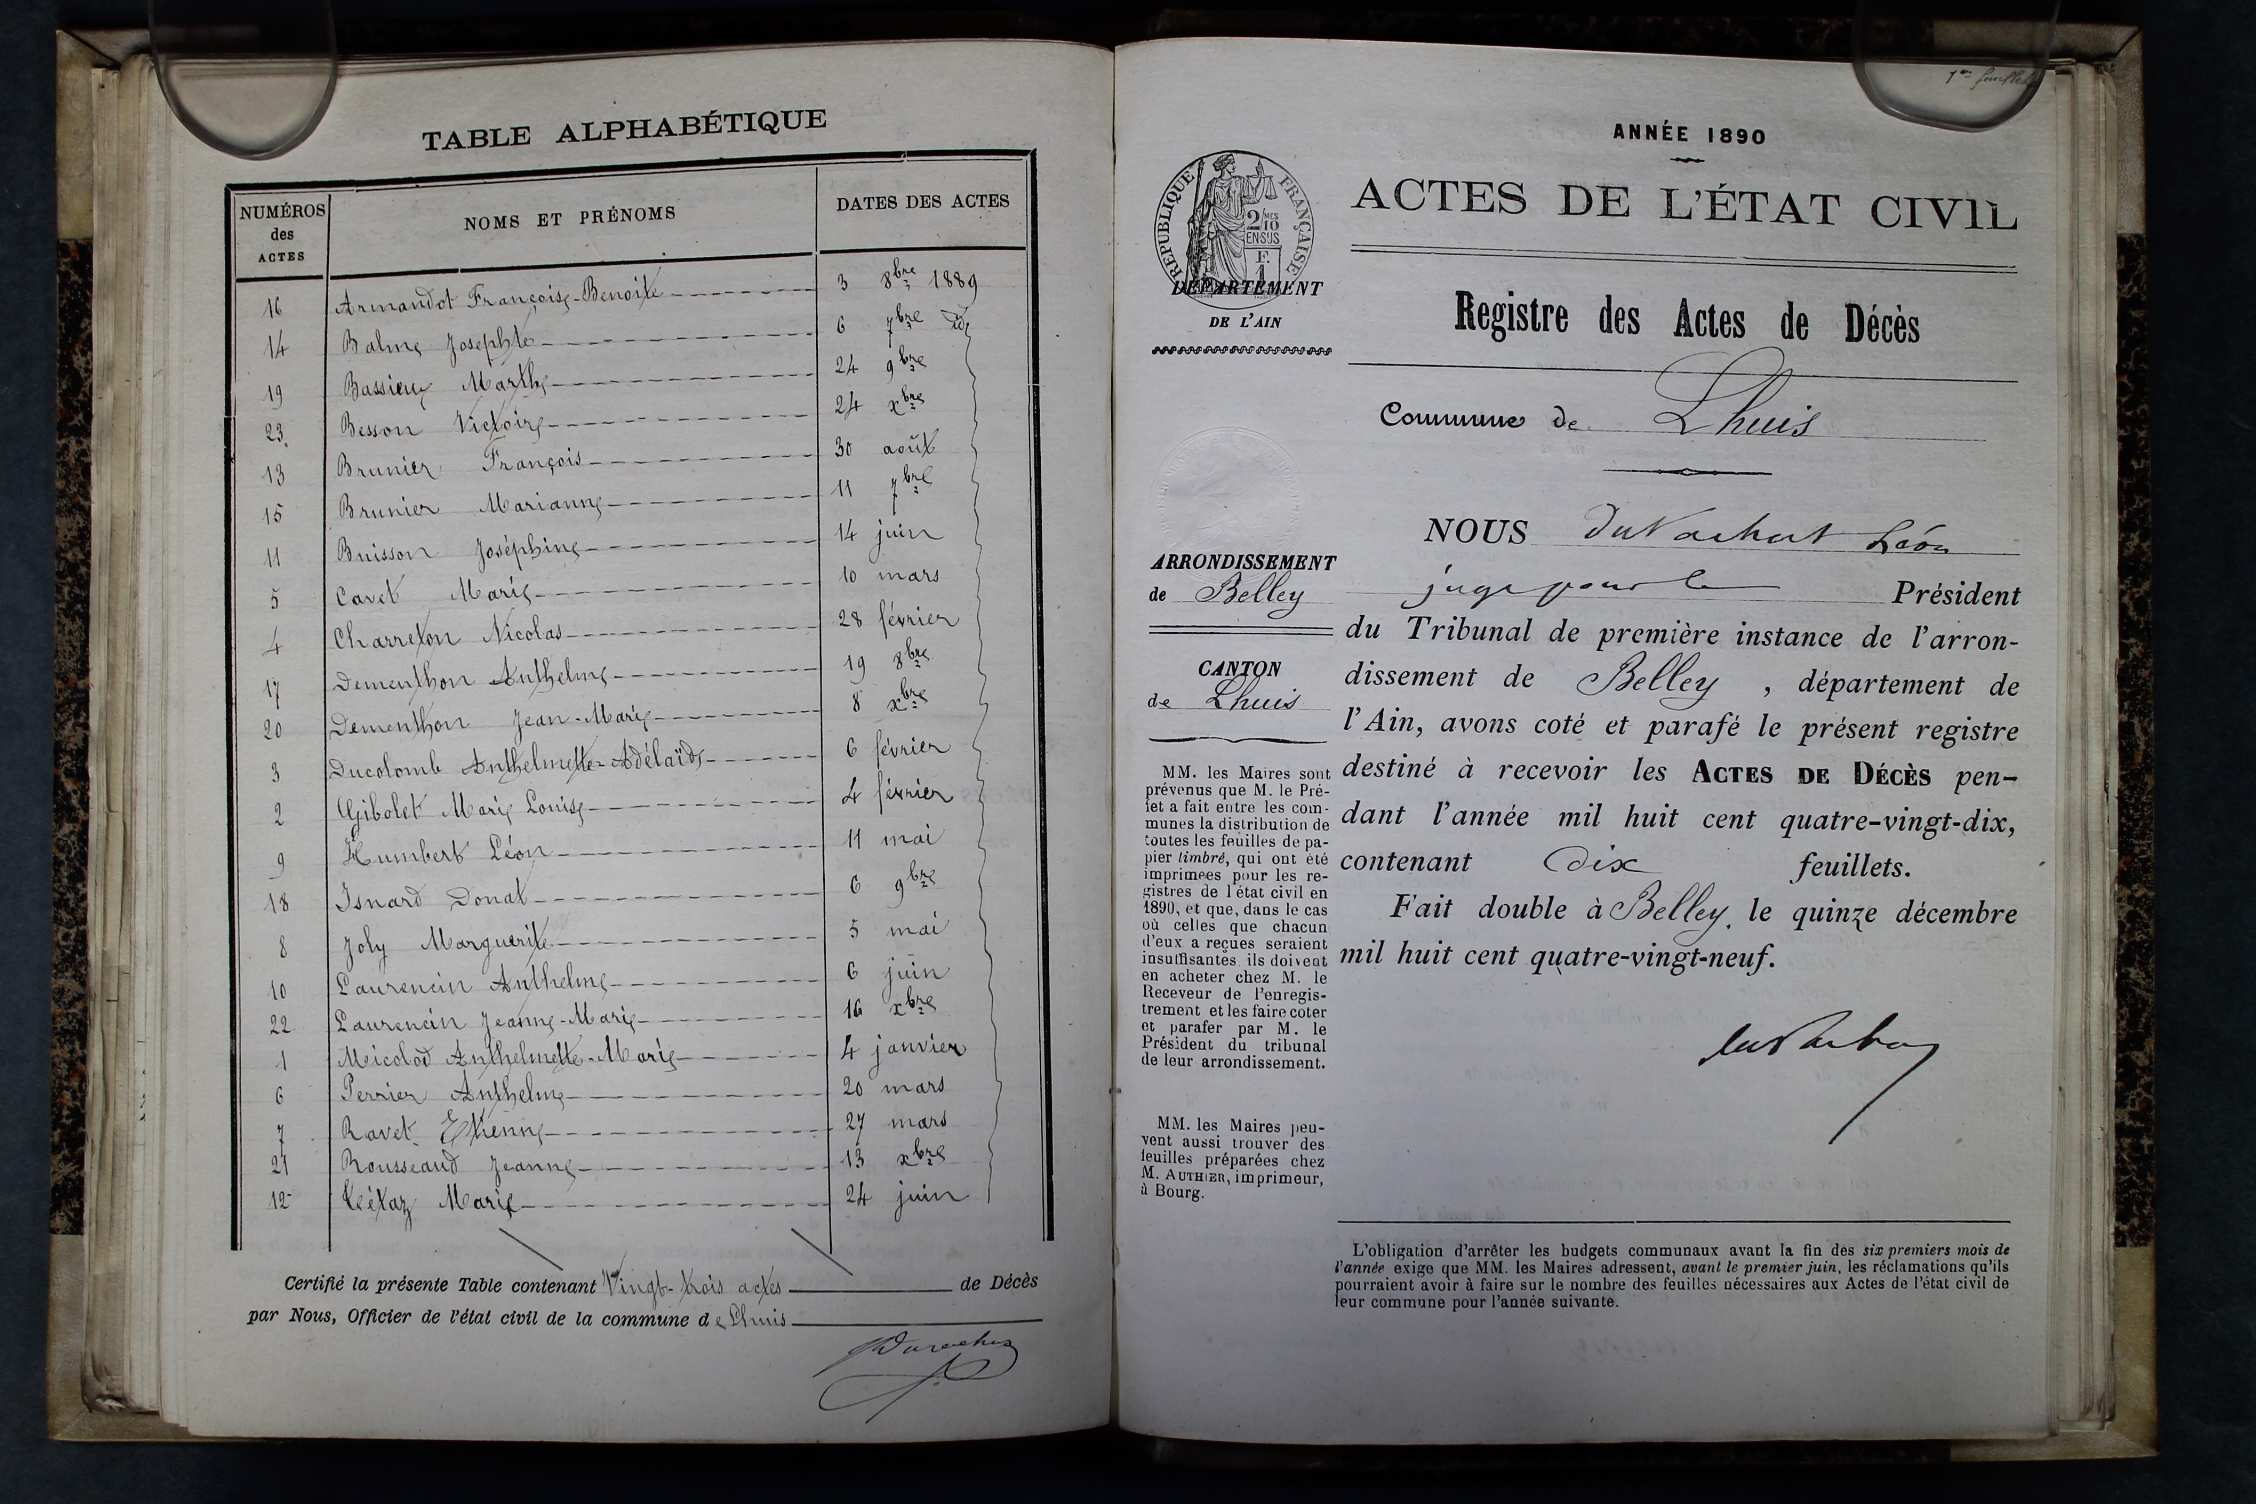 TABLE ALPHABÉTIQUE
NUMÉROS des ACTES NOMS ET PRÉNOMS DATES DES ACTES
16 Armandot Françoise-Benoite 3 8bre 1889
14 Balme Josephte 6 7bre id
19 Bassieux Marthe 24 9bre
23. Besson Victoire 24 xbre
13 Brunier François 30 août
15 Brunier Marianne 11 7bre
11 Buisson Joséphine 14 juin
5 Cavet Marie 10 mars
4 Charreton Nicolas 28 février
17 Dementhon Anthelme 19 8bre
20 Dementhon Jean-Marie 8 xbre
3 Ducolomb Anthelmette-Adélaïde 6 février
2 Gibolet Marie Louise 4 février
9 Humbert Léon 11 mai
18 Isnard Donat 6 9bre
8 Joly Marguerite 5 mai
10 Laurencin Anthelme 6 juin
22 Laurencin Jeanne-Marie 16 xbre
1 Micolod Anthelmette-Marie 4 janvier
6 Perrier Anthelme 20 mars
7 Ravet Etienne 27 mars
21 Rousseaud Jeanne 13 xbre
12 Tétaz Marie 24 juin
Certifié la présente Table contenant Vingt-trois actes de Décès
par Nous, Officier de l'état civil de la commune de Lhuis
ANNÉE 1890
RÉPUBLIQUE FRANÇAISE
2/10 MES
EN SUS
F.
1
ACTES DE L'ÉTAT CIVIL
DÉPARTEMENT
DE L'AIN
Registre des Actes de Décès
Commune de Lhuis
ARRONDISSEMENT
de Belley
CANTON
de Lhuis
MM. les Maires sont
prévenus que M. le Pré-
fet a fait entre les com-
munes la distribution de
toutes les feuilles de pa-
pier timbré, qui ont été
imprimées pour les re-
gistres de l'état civil en
1890, et que, dans le cas
où celles que chacun
d'eux a reçues seraient
insuffisantes, ils doivent
en acheter chez M. le
Receveur de l'enregis-
trement et les faire coter
et parafer par M. le
Président du tribunal
de leur arrondissement.
MM. les Maires peu-
vent aussi trouver des
feuilles préparées chez
M. AUTHIER, imprimeur,
à Bourg.
NOUS Léon
juge pour le Président
du Tribunal de première instance de l'arron-
dissement de Belley, département de
l'Ain, avons coté et parafé le présent registre
destiné à recevoir les ACTES DE DÉCÈS pen-
dant l'année mil huit cent quatre-vingt-dix,
contenant dix feuillets.
Fait double à Belley, le quinze décembre
mil huit cent quatre-vingt-neuf.
L'obligation d'arrêter les budgets communaux avant la fin des six premiers mois de
l'année exige que MM. les Maires adressent, avant le premier juin, les réclamations qu'ils
pourraient avoir à faire sur le nombre des feuilles nécessaires aux Actes de l'état civil de
leur commune pour l'année suivante.